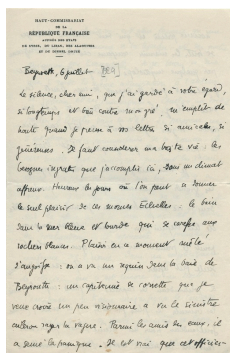 HAUT-COMMISSARIAT
DE LA
RÉPUBLIQUE FRANÇAISE
AUPRÈS DES ÉTATS
DE SYRIE, DU LIBAN, DES ALAOUITES
ET DU DJEBEL DRUZE
Beyrouth, 6 juillet
Le silence, cher ami, que j'ai gardé à votre égard,
si longtemps et bien contre mon gré, m'emplit de
honte quand je pense à vos lettres si amicales, si
généreuses. Il faut considérer ma triste vie : les
besognes ingrates que j'accomplis ici, sous un climat
affreux. Heureux les jours où l'on peut se donner
le seul plaisir de ces mornes Echelles : le bain
dans la mer bleue et lourde qui se caresse aux
rochers blancs. Plaisir en ce moment mêlé
d'angoisse : on a vu un requin dans la baie de
Beyrouth : un capitaine de corvette que je
veux croire un peu visionnaire a vu le sinistre
aileron rayer la vague. Parmi les amis des eaux, il
a semé la panique. Il est vrai que cet officier